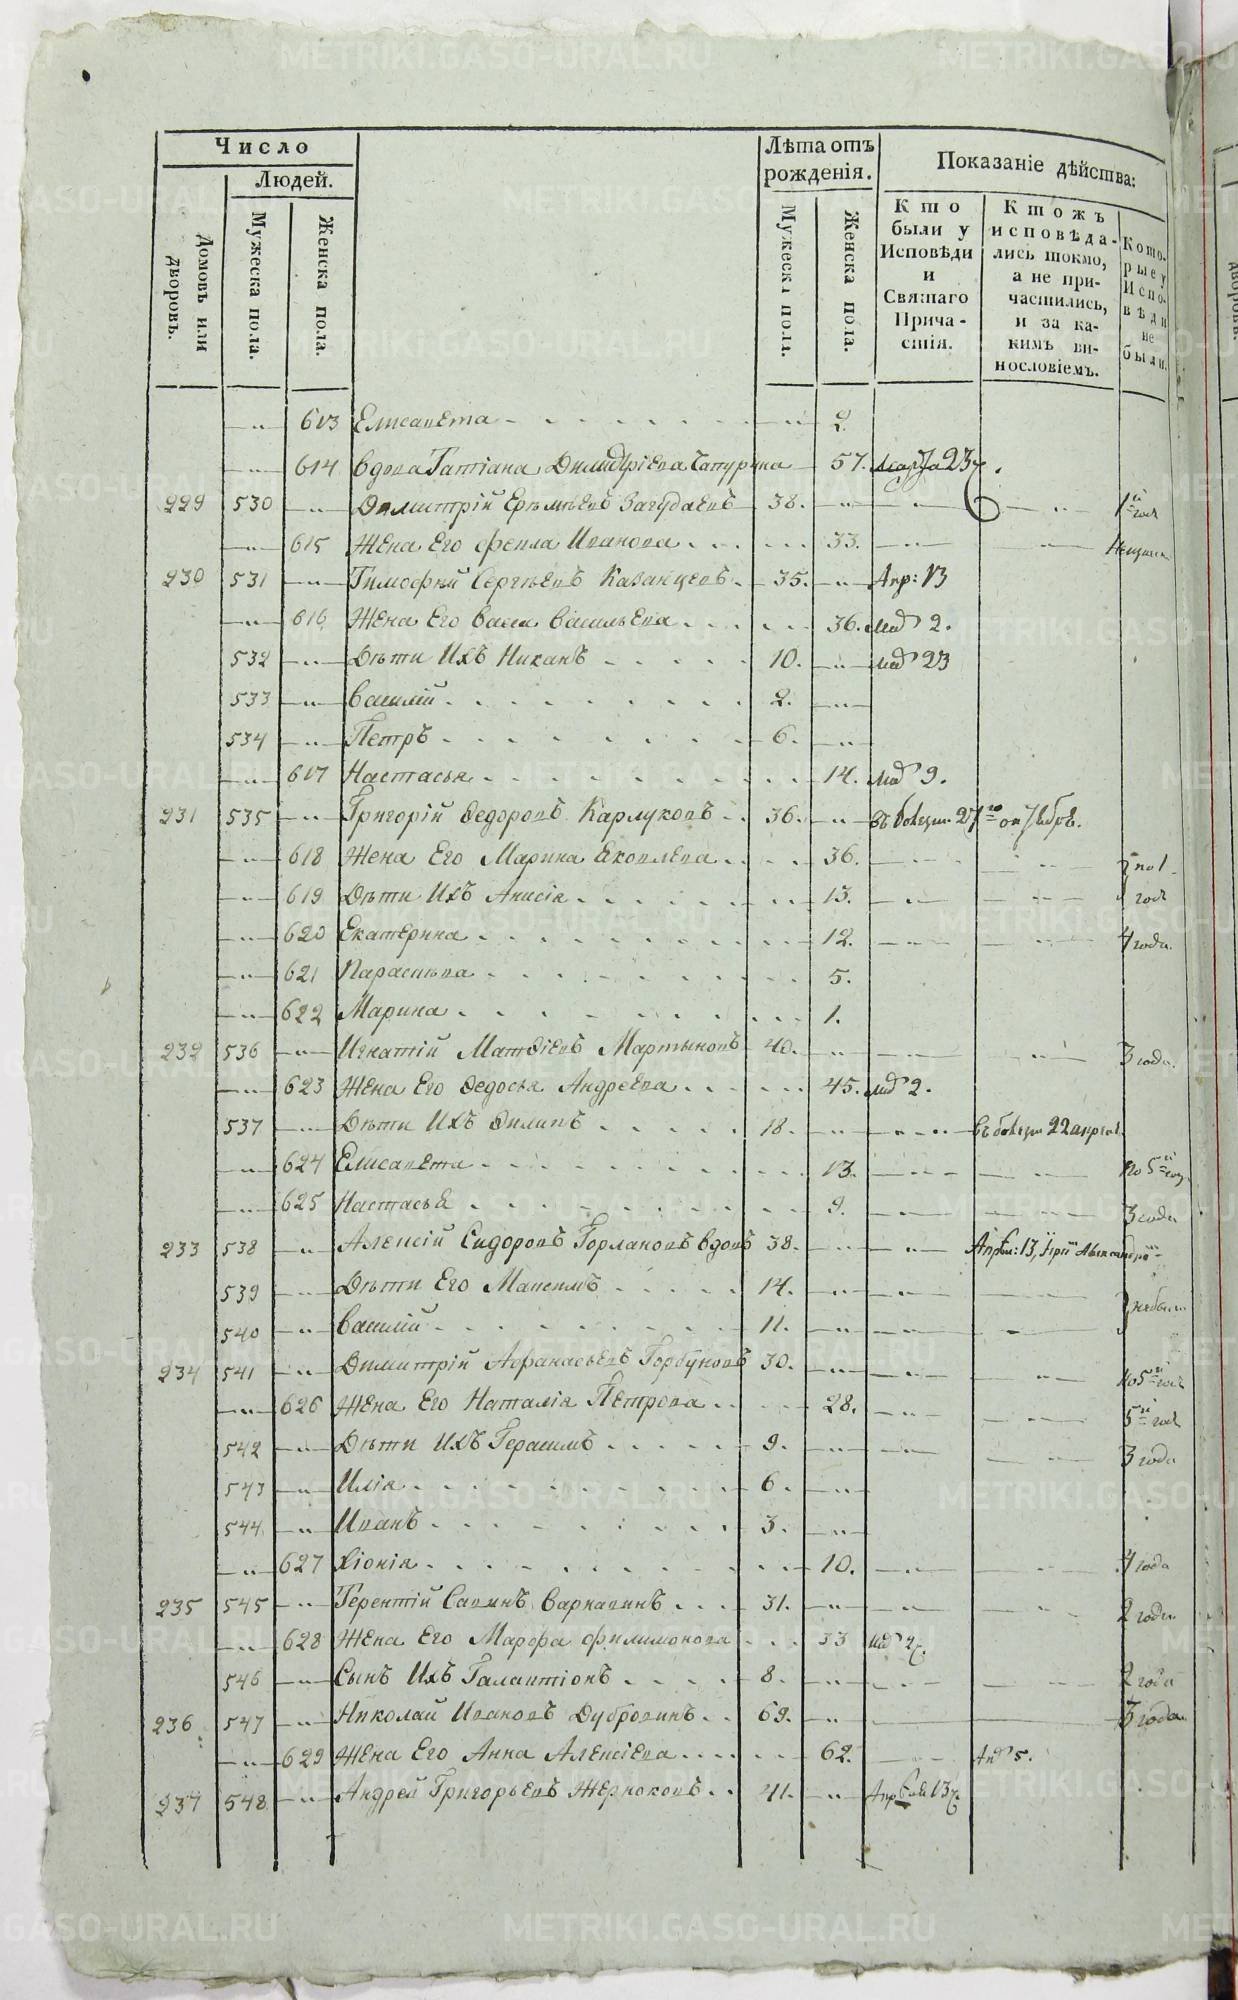 Число
Людей.
Домовъ или дворовъ.
Мужеска пола.
Женска пола.
Лѣта отъ рожденія.
Мужеска пола.
Женска пола.
Показаніе дѣйства:
Кто были у Исповѣди и Святаго Причастія.
Ктожъ исповѣдались токмо, а не причастились, и за какимъ винословіемъ.
Которые у Исповѣди не были.
613 Елисавета 2.
614 вдова Татіана Димитріева Чапурина 57. Марта 23
229 530 Димитрій Еремѣевъ Загудаевъ 38. 1й годъ
615 Жена Его Фекла Иванова 33.
230 531 Тимофѣй Сергѣевъ Казанцевъ 35. Апр: 13
616 Жена Его Васса Васильева 36. 2.
532 Дѣти Ихъ Никанъ 10. 23
533 Василій 2.
534 Петръ 6.
617 Настасья 14. 9.
231 535 Григорій Ѳедоровъ Карлуковъ 36. въ болезни 27го
618 Жена Его Марина Яковлева 36.
619 Дѣти Ихъ Анисія 13. годъ
620 Екатерина 12. 4 года.
621 Парасковa 5.
622 Марина 1.
232 536 Игнатій Матѳіевъ Мартыновъ 40. 3 года.
623 Жена Его Ѳедосья Андреева 45. 2.
537 Дѣти Ихъ Ѳилипъ 18. въ болезни 22 апреля
624 Елисавета 13. по 5й
625 Настасья 9. 3 года
233 538 Алексій Сидоровъ Горлановъ вдовъ 38. 13,
539 Дѣти Его Максимъ 14. не были
540 Василій 11.
234 541 Димитрій Афанасьевъ Горбуновъ 30. по 5й годъ
626 Жена Его Наталія Петрова 28. 5й годъ
542 Дѣти Ихъ Герасимъ 9. 3 года
543 Илія 6.
544 Иванъ 3.
627 Хіонія 10. 4 года
235 545 Терентій Савинъ Варнавинъ 31. 2 года
628 Жена Его Марфа Филимонова 33 2
546 Сынъ Ихъ Галактіонъ 8. 2 года
236 547 Николай Ивановъ Дубровинъ 69. 3 года
629 Жена Его Анна Алексіева 62. 5.
237 548 Андрей Григорьевъ Жерноковъ 41. 13
METRIKI.GASO-URAL.RU